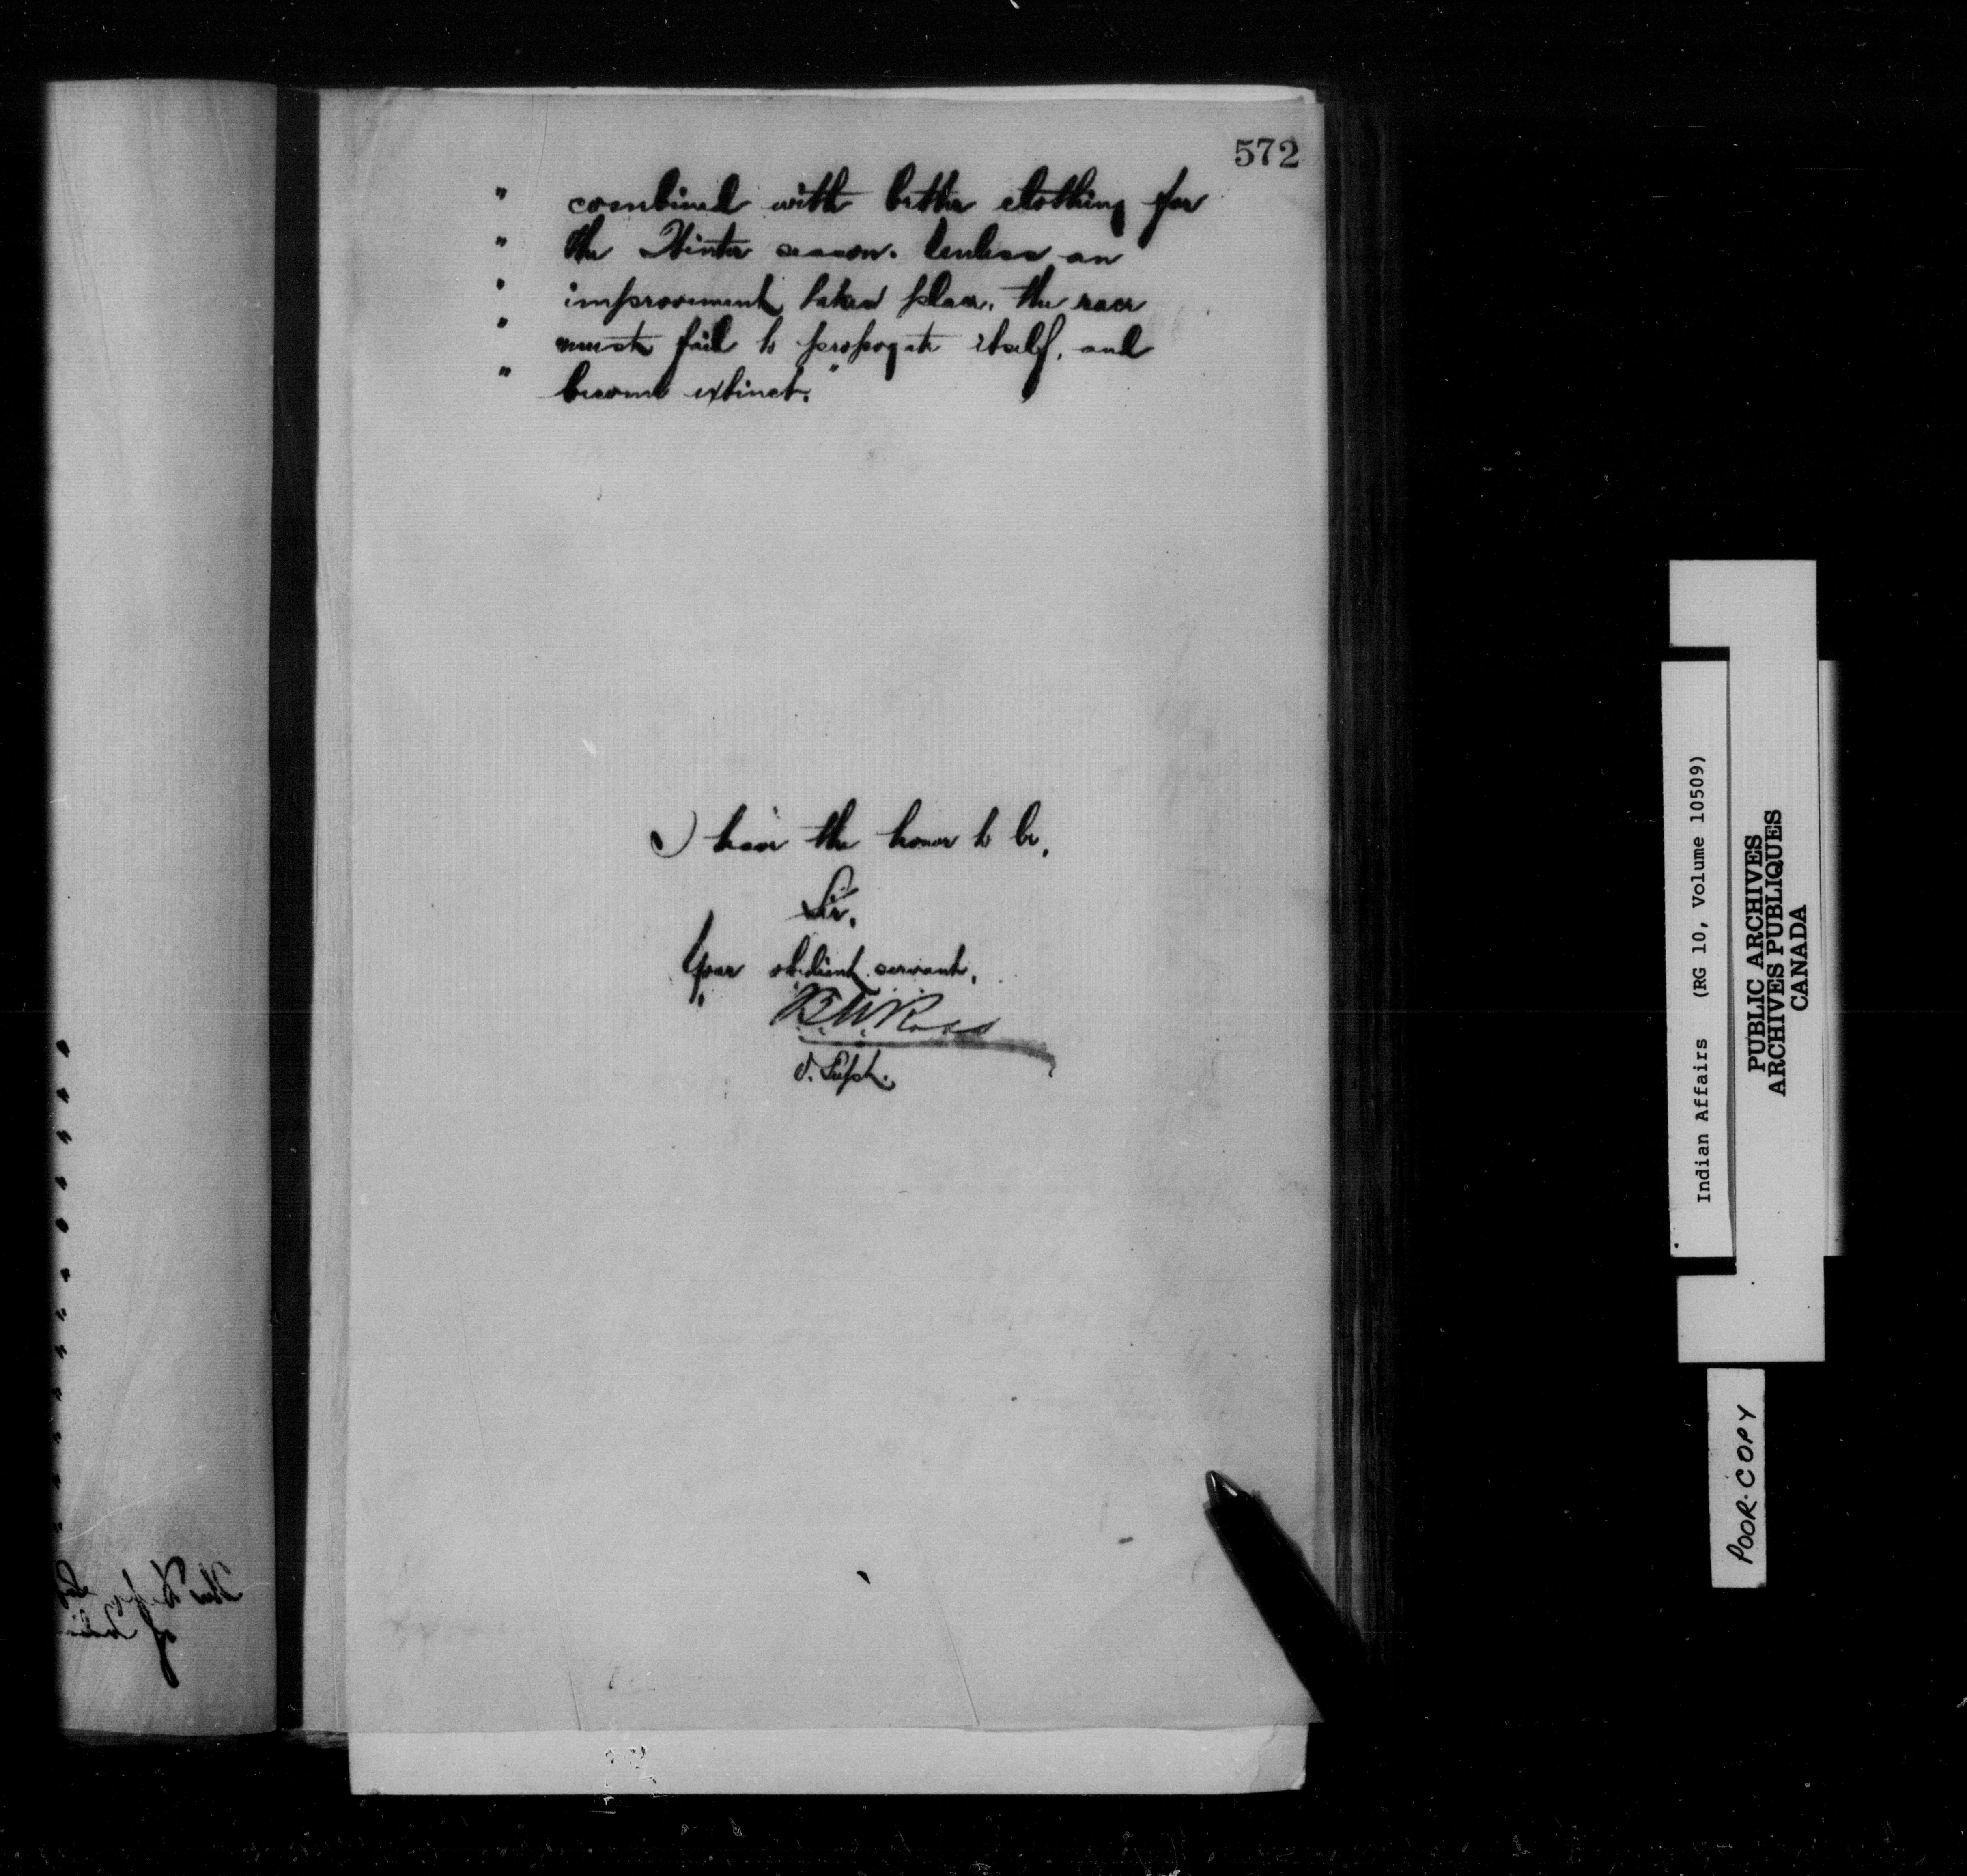 572
" combined with better clothing for
" the Winter season. Unless an
" improvement takes place, the race
" must fail to propogate itself, and
" become extinct."
I have the honor to be,
Sir,
Your obedient servant,
Supt.
Indian Affairs (RG 10, Volume 10509)
PUBLIC ARCHIVES
ARCHIVES PUBLIQUES
CANADA
POOR COPY